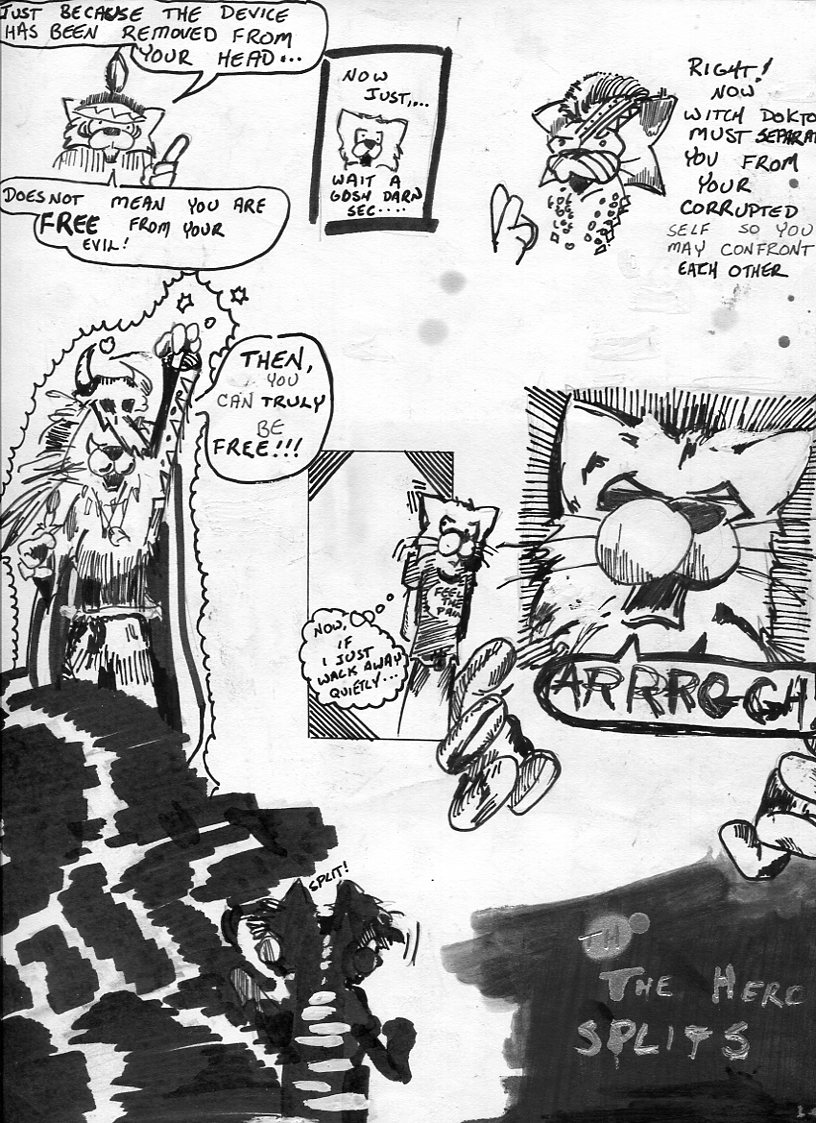 JUST BECAUSE THE DEVICE
HAS BEEN REMOVED FROM
YOUR HEAD...
DOES NOT MEAN YOU ARE
FREE FROM YOUR
EVIL!
NOW
JUST,....
WAIT A
GOSH DARN
SEC....
RIGHT!
NOW
WITCH DOKTO
MUST SEPARAT
YOU FROM
YOUR
CORRUPTED
SELF SO YOU
MAY CONFRONT
EACH OTHER
THEN,
YOU
CAN TRULY
BE
FREE!!!
FEEL
THE
PAIN
NOW,
IF
I JUST
WALK AWAY
QUIETLY...
ARRRGGH!
SPLIT!
THE HERO
SPLITS